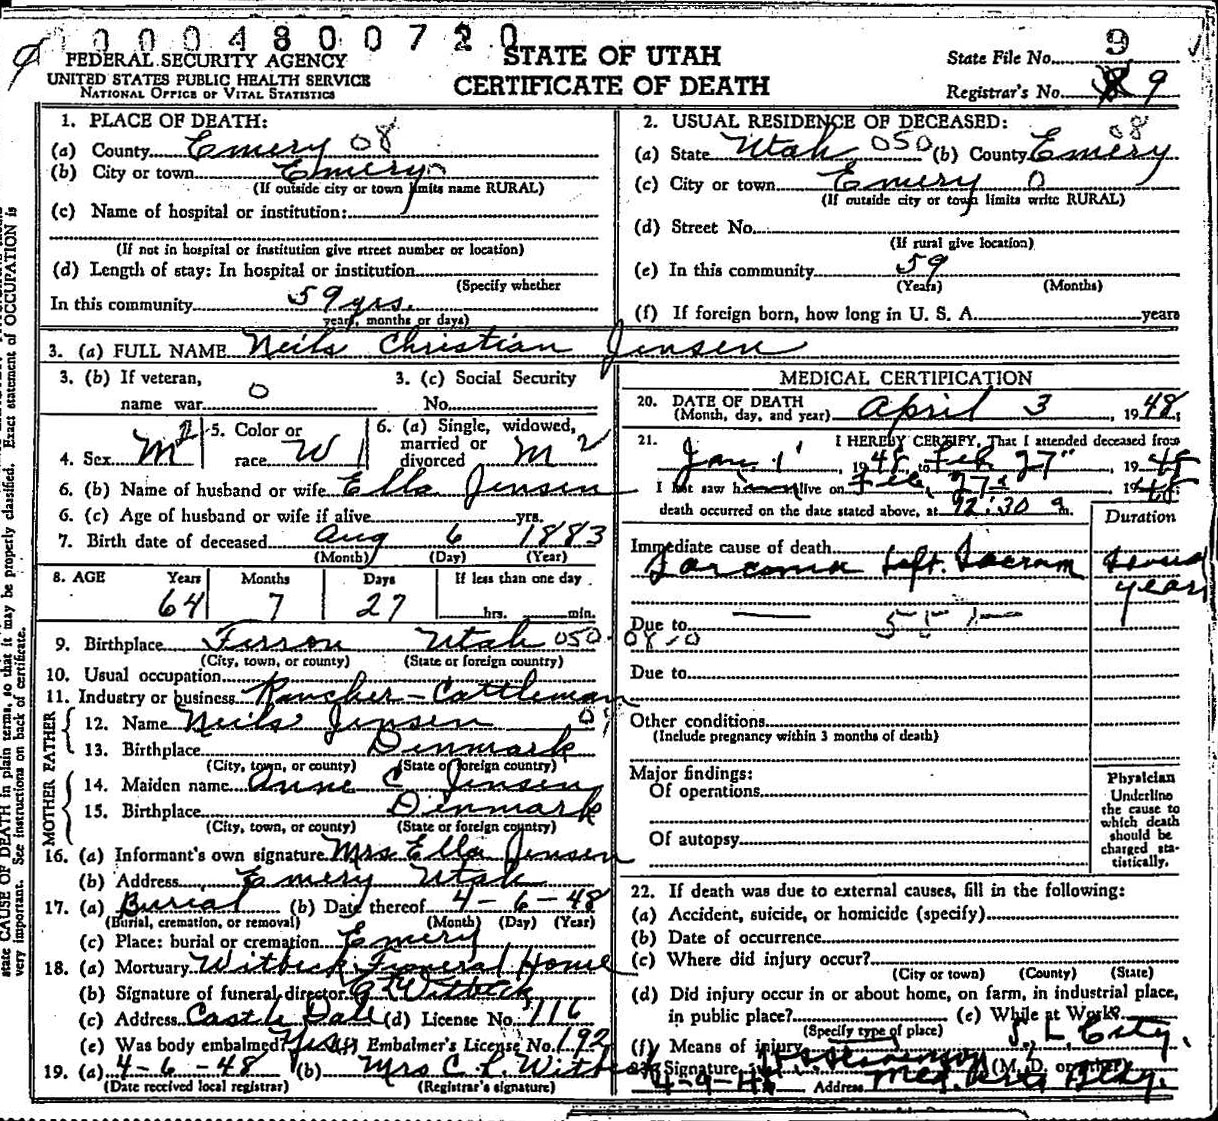 000480072 0
9
FEDERAL SECURITY AGENCY
UNITED STATES PUBLIC HEALTH SERVICE
NATIONAL OFFICE OF VITAL STATISTICS
STATE OF UTAH
CERTIFICATE OF DEATH
State File No.
Registrar's No. 9
1. PLACE OF DEATH:
(a) County Emery 08
(b) City or town Emery 0
(If outside city or town limits name RURAL)
(c) Name of hospital or institution:
(If not in hospital or institution give street number or location)
(d) Length of stay: In hospital or institution
(Specify whether
In this community 59 yrs.
years, months or days)
2. USUAL RESIDENCE OF DECEASED: 08
(a) State Utah 050 (b) County Emery
(c) City or town Emery 0
(If outside city or town limits write RURAL)
(d) Street No.
(If rural give location)
(e) In this community 59
(Years) (Months)
(f) If foreign born, how long in U. S. A. years
3. (a) FULL NAME Neils Christian Jensen
3. (b) If veteran,
name war 0
3. (c) Social Security
No.
4. Sex M
5. Color or
race W
6. (a) Single, widowed,
married or
divorced M
6. (b) Name of husband or wife Ella Jensen
6. (c) Age of husband or wife if alive yrs.
7. Birth date of deceased Aug 6 1883
(Month) (Day) (Year)
8. AGE Years Months Days If less than one day
64 7 27 hrs. min.
9. Birthplace Ferron Utah 050 08-0
(City, town, or county) (State or foreign country)
10. Usual occupation
11. Industry or business Rancher - Cattleman
FATHER
12. Name Neils Jensen
13. Birthplace Denmark
(City, town, or county) (State or foreign country)
MOTHER
14. Maiden name Anne C Jensen
15. Birthplace Denmark
(City, town, or county) (State or foreign country)
16. (a) Informant's own signature Mrs Ella Jensen
(b) Address Emery Utah
17. (a) Burial (b) Date thereof 4-6-48
(Burial, cremation, or removal) (Month) (Day) (Year)
(c) Place: burial or cremation Emery
18. (a) Mortuary Witbeck Funeral Home
(b) Signature of funeral director Witbeck
(c) Address Castle Dale (d) License No. 116
(e) Was body embalmed? Yes (f) Embalmer's License No. 192
19. (a) 4-6-48 (b) Mrs C. L. Witbeck
(Date received local registrar) (Registrar's signature)
MEDICAL CERTIFICATION
20. DATE OF DEATH
(Month, day, and year) April 3, 1948;
21. I HEREBY CERTIFY, That I attended deceased from
Jan. 1, 1948, to Feb 27, 1948
I last saw him alive on Feb. 27, 1948
death occurred on the date stated above, at 12:30 a. m.
Duration
Immediate cause of death
Sarcoma Left. Sacrum
years
Due to
Due to
Other conditions
(Include pregnancy within 3 months of death)
Major findings:
Of operations
Of autopsy
Physician
Underline
the cause to
which death
should be
charged sta-
tistically.
22. If death was due to external causes, fill in the following:
(a) Accident, suicide, or homicide (specify)
(b) Date of occurrence
(c) Where did injury occur?
(City or town) (County) (State)
(d) Did injury occur in or about home, on farm, in industrial place,
in public place? (e) While at Work?
(Specify type of place)
(f) Means of injury S. L. City.
Signature (M. D. or other)
4-9-48 Address Med. Arts Bldg.
state CAUSE OF DEATH in plain terms, so that it may be properly classified. Exact statement of OCCUPATION is
very important. See instructions on back of certificate.